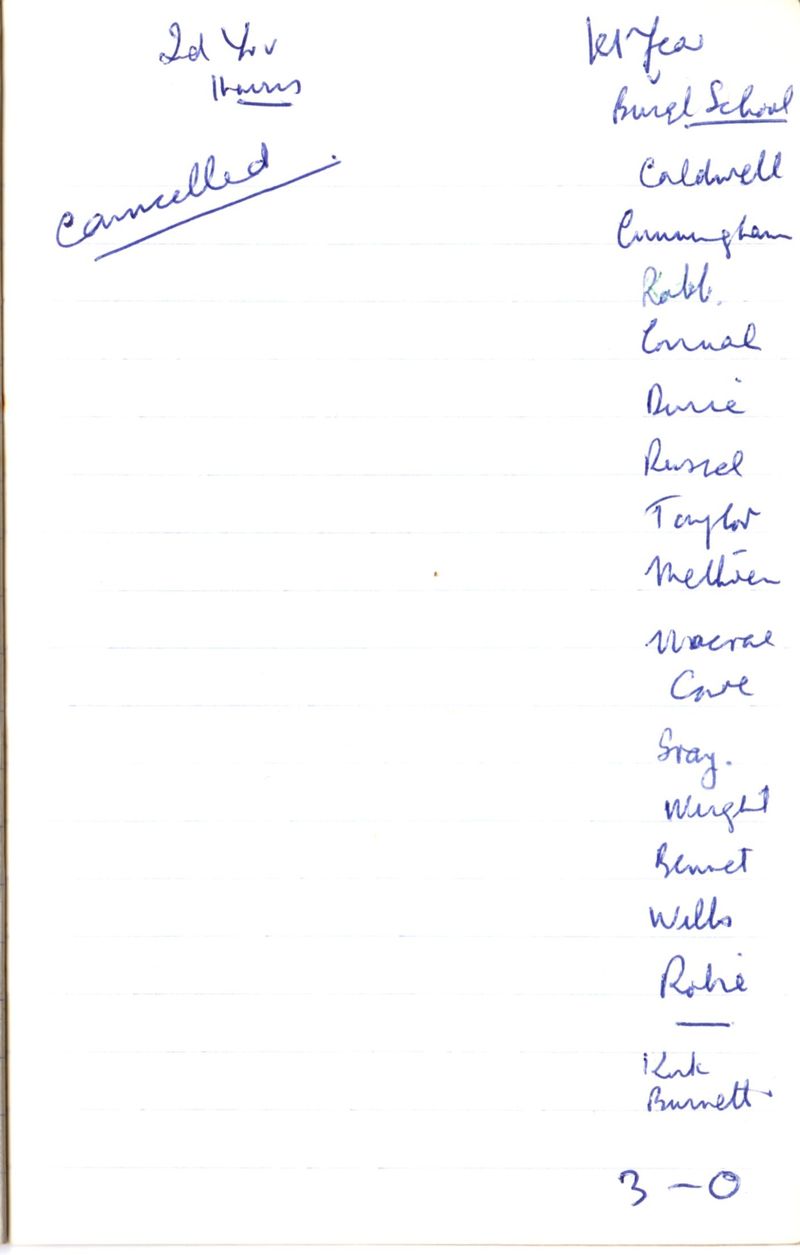 2d Yr v
Harris
Cancelled.
1st Year
v
Burgh School
Caldwell
Cunningham
Robb.
Cornal
Durie
Russel
Taylor
Methven
Macrae
Cave
Gray.
Wright
Bennet
Wills
Robie
Kirk
Burnett
3 – 0